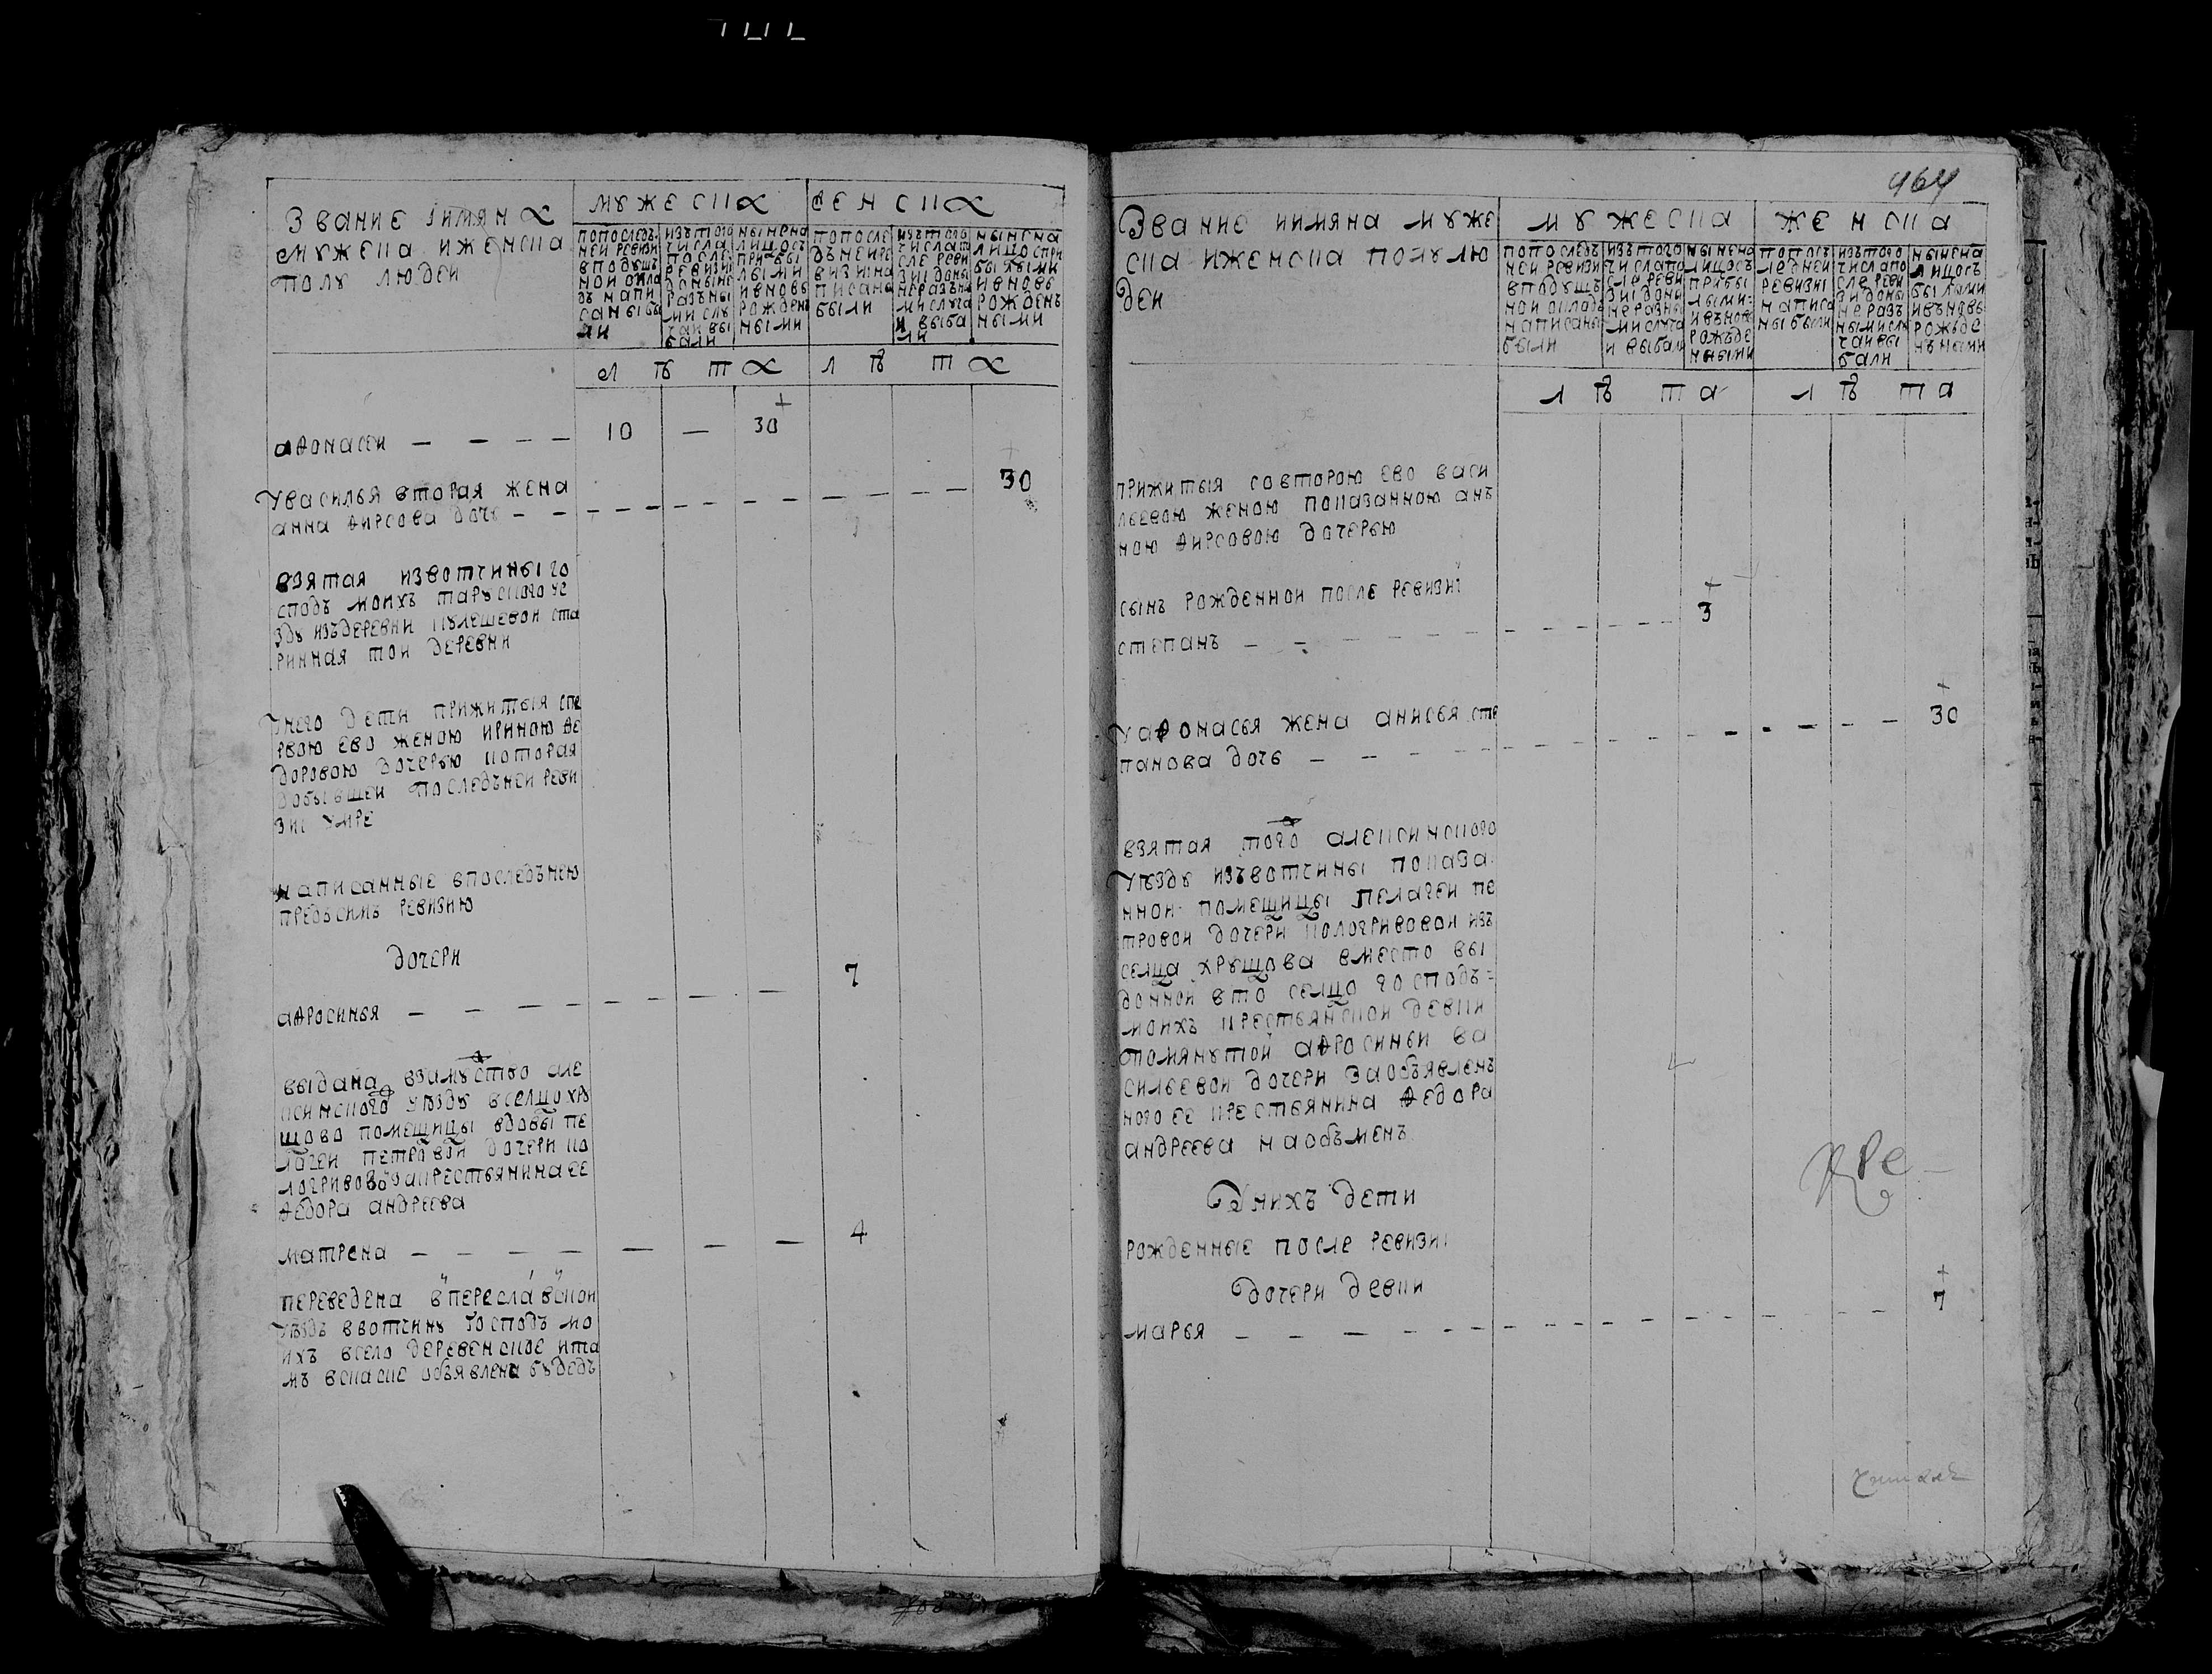 Звание iимяна
мужеска иженска
полу людеи
мужеска
женска
попоследъ
неи ревизи
вподушъ
нои окла
дъ напи
саны бы
ли
изътого
числа
после
ревизиi
доныне
разны
ми слу
чаи вы
бали
ныне на
лицо съ
прибы
лыми
ивновь
рожден
ными
попосле
дънеи ре
визиi на
писаны
были
изътого
числа по
сле реви
зиi доны
не разны
ми случа
и выба
ли
ныне на
лицо спри
былыми
ивновь
рожденъ
ными
лѣта лѣта
аѳонасеи 10 30
Увасилья вторая жена
анна ѳирсова дочь 30
взятая извотчины го
сподъ моихъ таруского уе
зду изъдеревни кулешевои ста
ринная тои деревни
Унего дети прижитыя спе
рвою ево женою ириною ѳе
доровою дочерью которая
добывшеи последънеи реви
зиi умре
написанные впоследънею
предъсимъ ревизию
дочери
аѳросинья 7
выдана взамуство але
ксинского уѣзду вселцо хру
щово помещицы вдовы пе
лагеи петровои дочери ко
логривовои закрестьянина ее
ѳедора андреева
матрена 4
переведена впереславскои
уѣздъ ввотчину господъ мо
ихъ всело деревенское ита
мъ вскаске объявлена будедъ
464
Звание иимяна муже
ска иженска полу лю
деи
мужеска
женска
попоследъ
неи ревизи
вподушъ
нои окладъ
написаны
были
изътого
числа по
сле реви
зиi доны
не разны
ми случа
и выбали
ныне на
лицо съ
прибы
лыми
ивъновь
рожъде
нными
попосъ
ледънеи
ревизиi
написа
ны были
изътого
числа по
сле реви
зи доны
не разъ
ными слу
чаи вы
бали
ныне на
лицо съ
былыми
ивъновь
рожъде
нъными
лѣта лѣта
прижитыя совторою ево васи
льевою женою показанною анъ
ною ѳирсовою дочерью
сынъ рожденнои после ревизиi
степанъ 3
Уаѳонасья жена анисья сте
панова дочь 30
взятая того алексинского
уѣзду изъвотчины показа
ннои помещицы пелагеи пе
тровои дочери кологривовои изъ
селца хрущова вместо вы
даннои вто селцо господъ
моихъ крестьянскои девки
помянутои аѳросиньи ва
сильевои дочери заобъявленъ
ного ее крестьянина ѳедора
андреева наобъменъ
Унихъ дети
рожденные после ревизиi
дочери девки
марья 7